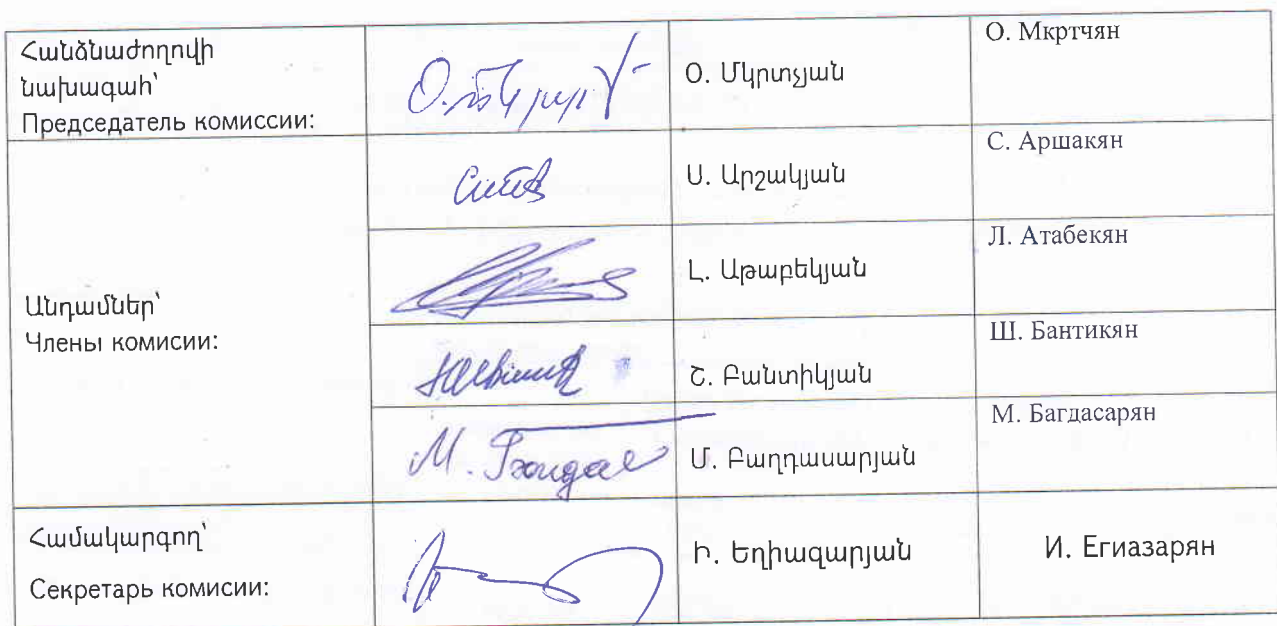 Հանձնաժողովի
նախագահ՝
Председатель комиссии:
Օ. Մկրտչյան
О. Мкртчян
Ս. Արշակյան
С. Аршакян
Անդամներ՝
Члены комисии:
Լ. Աթաբեկյան
Л. Атабекян
Շ. Բանտիկյան
Ш. Бантикян
М. Багдас
Մ. Բաղդասարյան
М. Багдасарян
Համակարգող՝
Секретарь комисии:
Ի. Եղիազարյան
И. Егиазарян